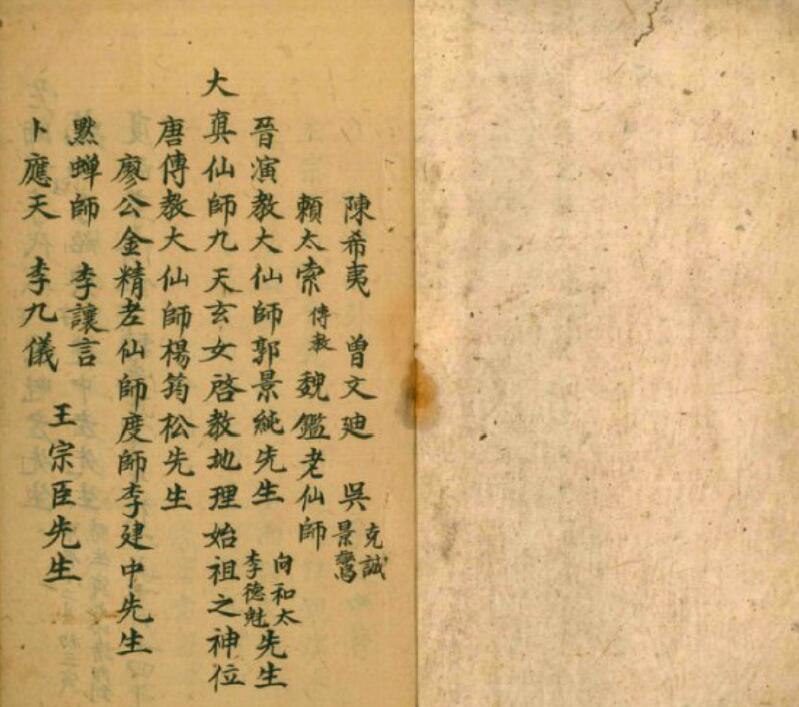 陳希夷 曾文廸 吳克誠景鸞
賴太索傳教 魏鑑老仙師
晉演教大仙師郭景純先生 向和太李德魁先生
大真仙師九天玄女啓教地理始祖之神位
唐傳教大仙師楊筠松先生
廖公金精老仙師度師李建中先生
黙蟬師 李讓言
卜應天 李九儀 王宗臣先生